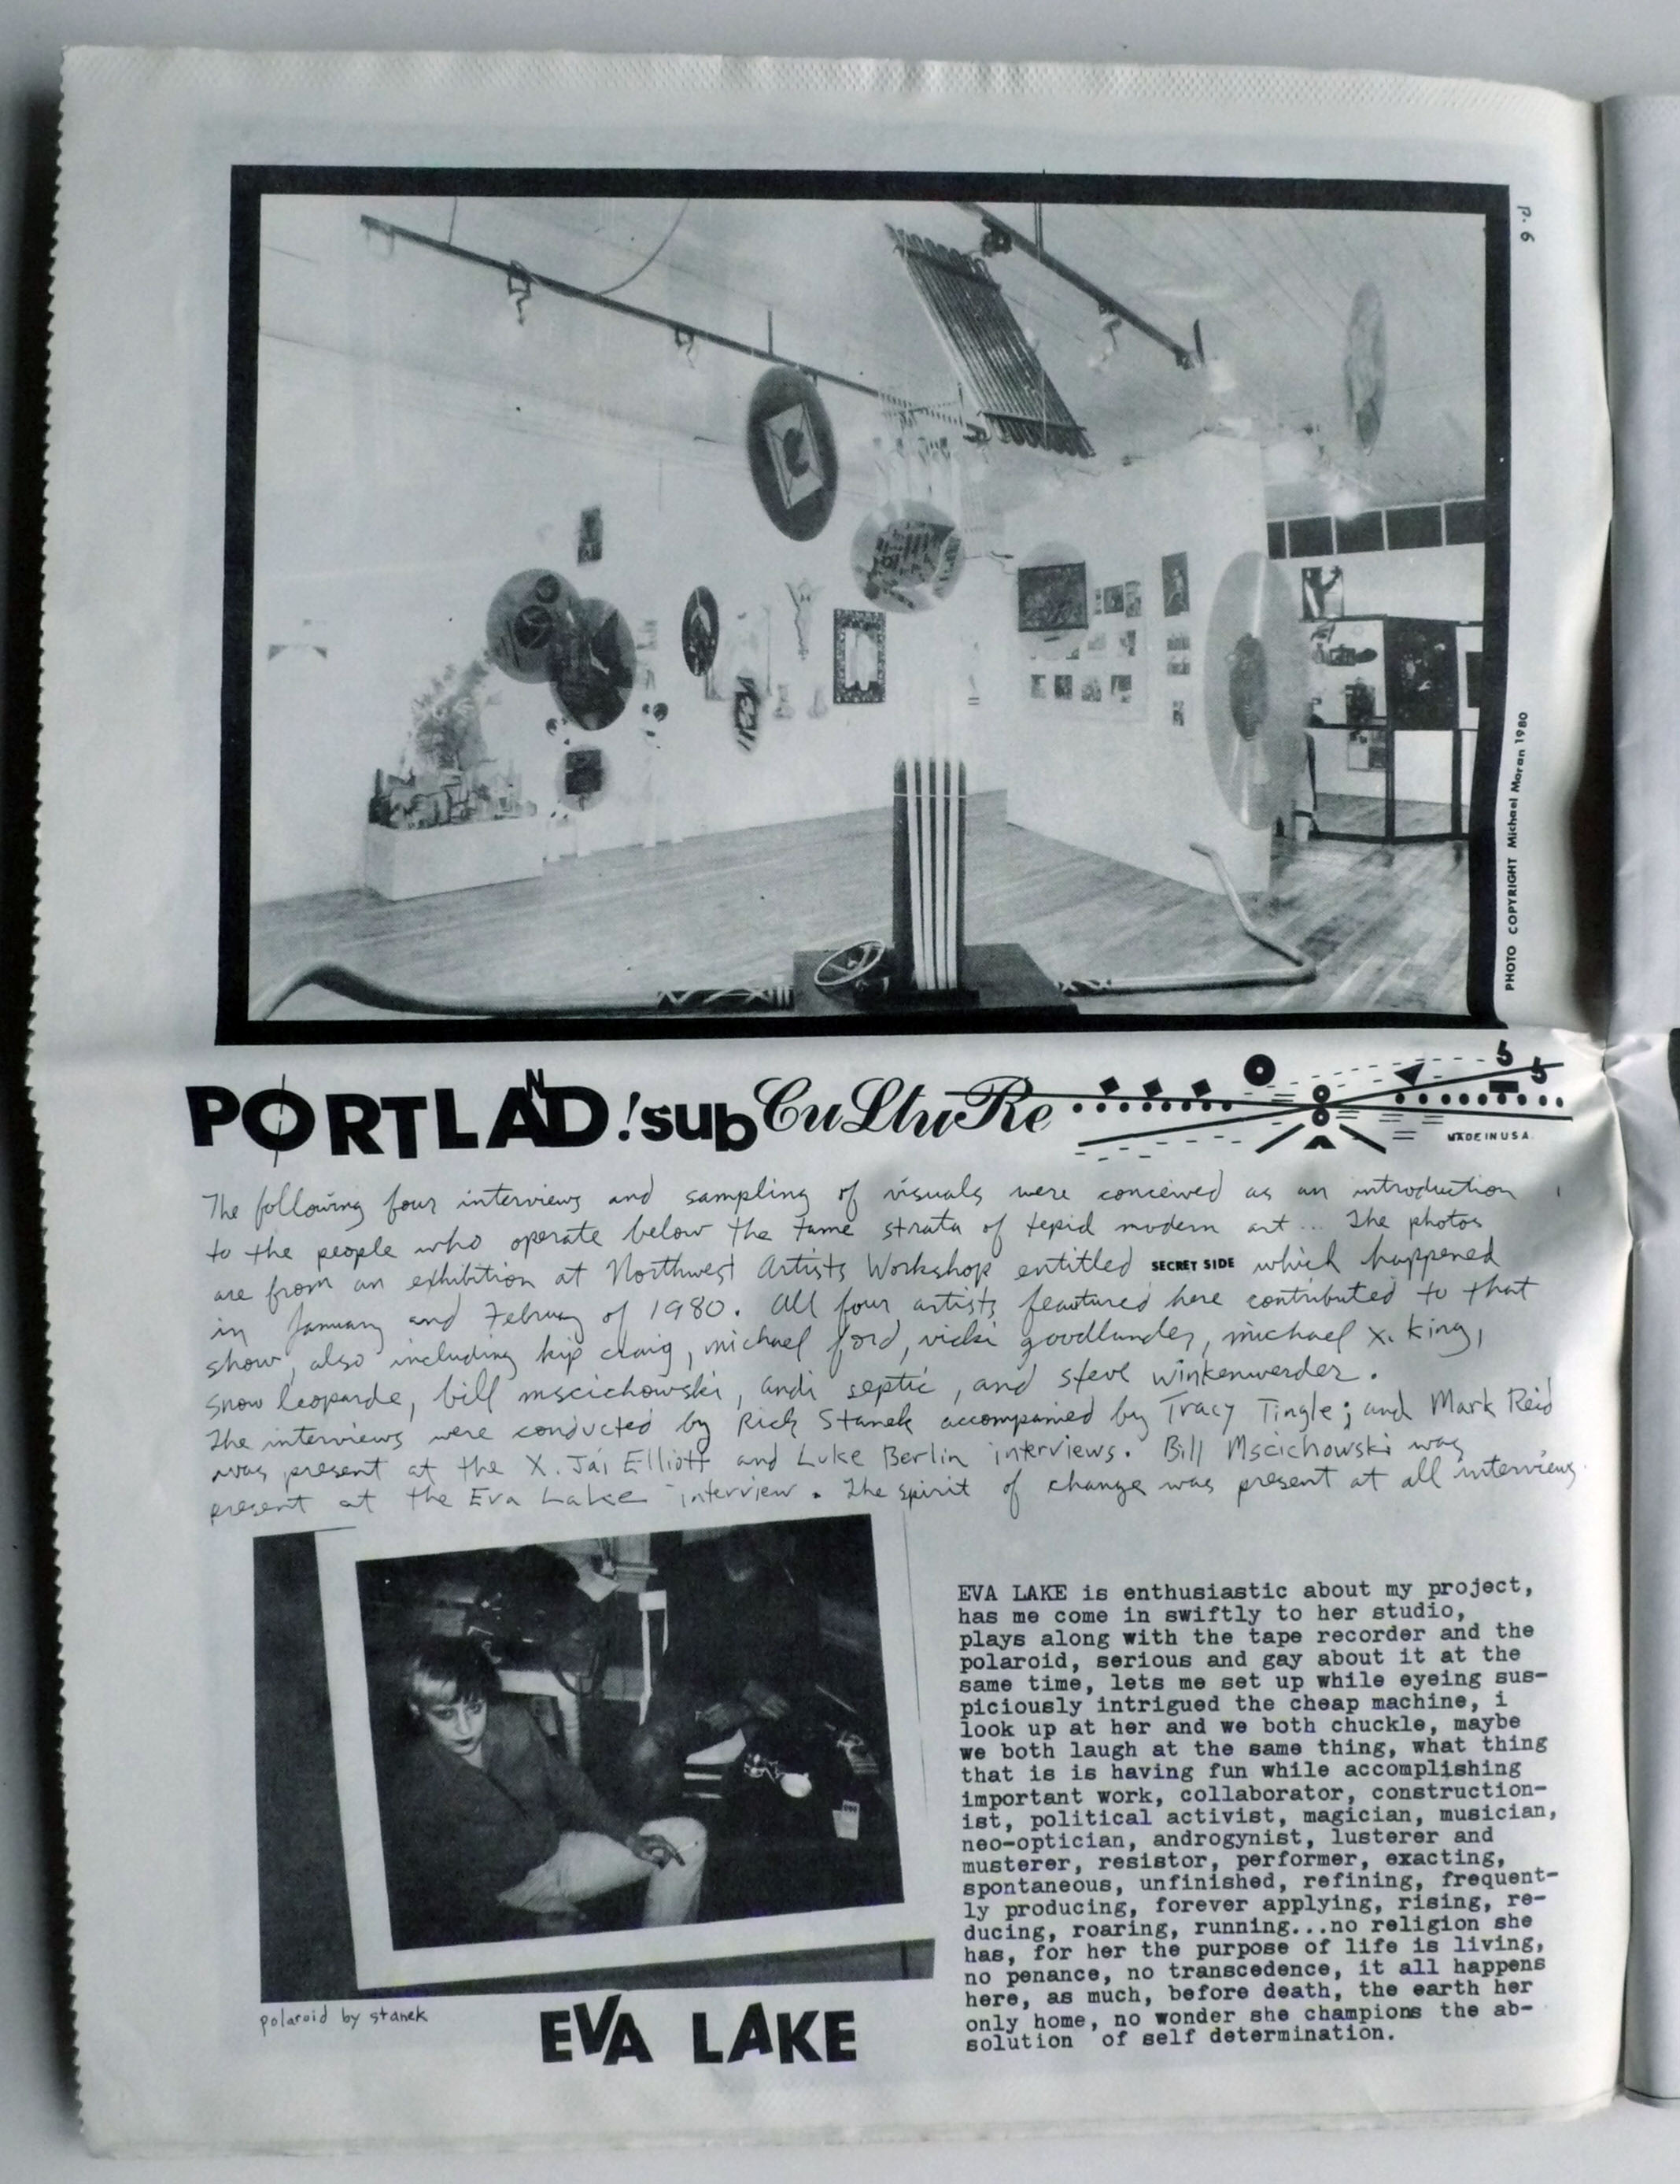 p. 6
PHOTO COPYRIGHT Michael Moran 1980
PORTLAND!subCuLtuRe
5 5
MADE IN USA.
The following four interviews and sampling of visuals were conceived as an introduction
to the people who operate below the tame strata of tepid modern art... The photos
are from an exhibition at Northwest Artists Workshop entitled SECRET SIDE which happened
in January and February of 1980. All four artists feautured here contributed to that
show, also including kip craig, michael ford, vicki goodlander, michael x. king,
snow leoparde, bill mscichowski, andi septic, and steve winkenwerder.
The interviews were conducted by Rick Stanek accompanied by Tracy Tingle; and Mark Reid
was present at the X. Jai Elliott and Luke Berlin interviews. Bill Mscichowski was
present at the Eva Lake interview. The spirit of change was present at all interviews.
EVA LAKE is enthusiastic about my project,
has me come in swiftly to her studio,
plays along with the tape recorder and the
polaroid, serious and gay about it at the
same time, lets me set up while eyeing sus-
piciously intrigued the cheap machine, i
look up at her and we both chuckle, maybe
we both laugh at the same thing, what thing
that is is having fun while accomplishing
important work, collaborator, construction-
ist, political activist, magician, musician,
neo-optician, androgynist, lusterer and
musterer, resistor, performer, exacting,
spontaneous, unfinished, refining, frequent-
ly producing, forever applying, rising, re-
ducing, roaring, running...no religion she
has, for her the purpose of life is living,
no penance, no transcedence, it all happens
here, as much, before death, the earth her
only home, no wonder she champions the ab-
solution of self determination.
polaroid by stanek
EVA LAKE